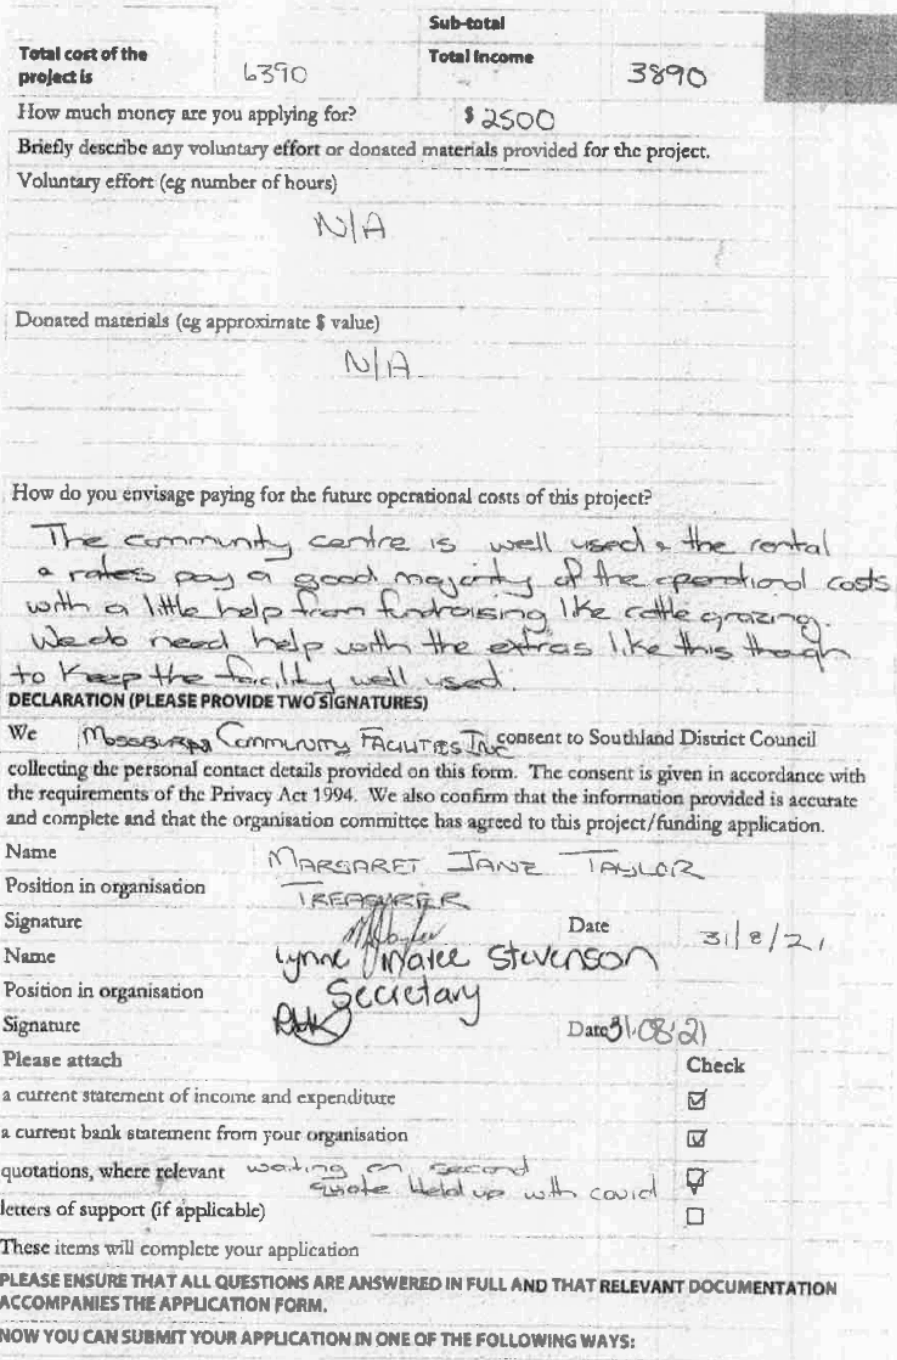 Sub-total
Total cost of the project is 6390 Total Income 3890
How much money are you applying for? $ 2500
Briefly describe any voluntary effort or donated materials provided for the project.
Voluntary effort (eg number of hours)
N/A
Donated materials (eg approximate $ value)
N/A
How do you envisage paying for the future operational costs of this project?
The community centre is well used & the rental
& rates pay a good majority of the operational costs
with a little help from fundraising like cattle grazing.
We do need help with the extras like this though
to keep the facility well used.
DECLARATION (PLEASE PROVIDE TWO SIGNATURES)
We Mossburn Community Facilities Inc consent to Southland District Council
collecting the personal contact details provided on this form. The consent is given in accordance with
the requirements of the Privacy Act 1994. We also confirm that the information provided is accurate
and complete and that the organisation committee has agreed to this project/funding application.
Name MARGARET JANE TAYLOR
Position in organisation TREASURER
Signature Date 31/8/21
Name Lynne Maree Stevenson
Position in organisation Secretary
Signature Date 31.08.21
Please attach Check
a current statement of income and expenditure
a current bank statement from your organisation
quotations, where relevant waiting on second
quote held up with covid
letters of support (if applicable)
These items will complete your application
PLEASE ENSURE THAT ALL QUESTIONS ARE ANSWERED IN FULL AND THAT RELEVANT DOCUMENTATION
ACCOMPANIES THE APPLICATION FORM.
NOW YOU CAN SUBMIT YOUR APPLICATION IN ONE OF THE FOLLOWING WAYS: